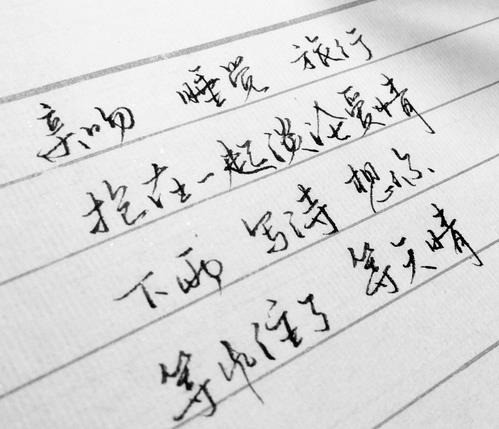 亲吻 睡觉 旅行
抱在一起谈论爱情
下雨 写诗 想你
等雨住了 等天晴